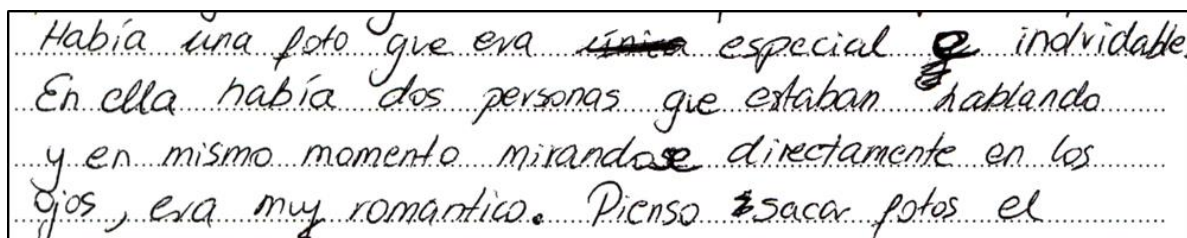 Había una foto que era única especial e indvidable.
En ella había dos personas que estaban hablando
y en mismo momento mirandose directamente en los
ojos, era muy romantico. Pienso sacar fotos el